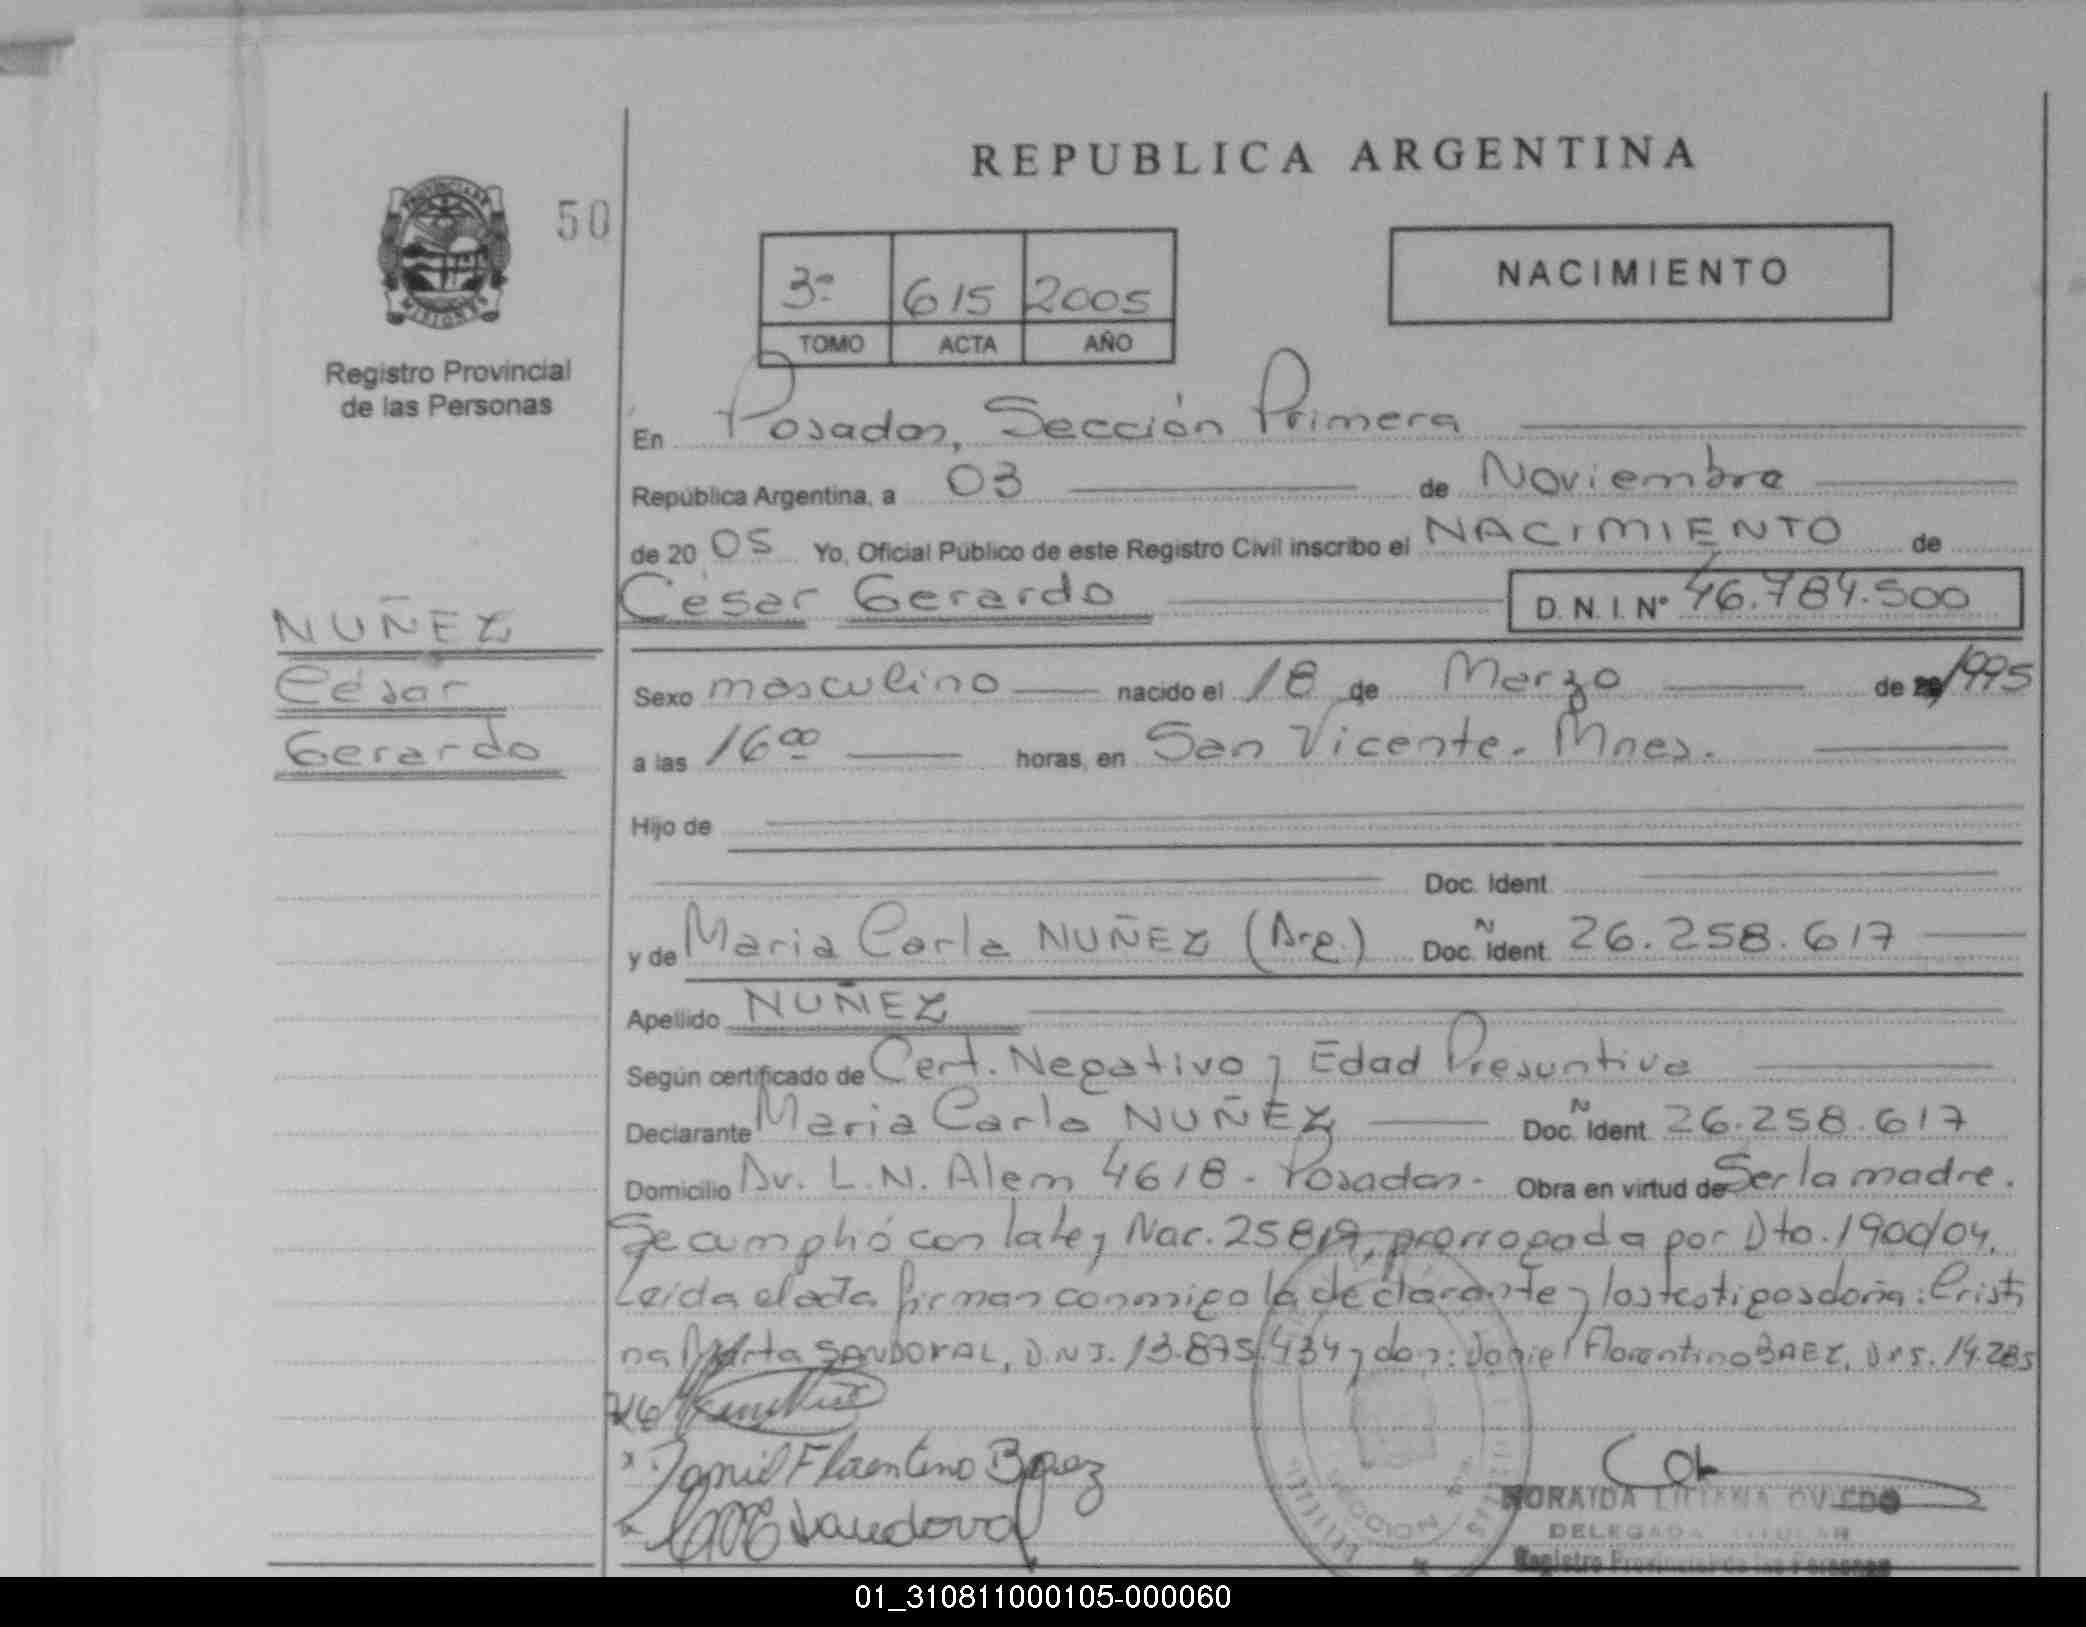 REPUBLICA ARGENTINA
PROVINCIA DE
MISIONES
50
Registro Provincial
de las Personas
3º 615 2005
TOMO ACTA AÑO
NACIMIENTO
En Posadas, Sección Primera
República Argentina, a 03 de Noviembre
de 2005 Yo, Oficial Público de este Registro Civil inscribo el NACIMIENTO de
César Gerardo D.N.I. Nº 46.784.500
NUÑEZ
César
Gerardo
Sexo masculino nacido el 18 de Marzo de 1995
a las 16⁰⁰ horas, en San Vicente. Mnes.
Hijo de
Doc. Ident.
y de Maria Carla NUÑEZ (Arg.) Doc. N Ident. 26.258.617
Apellido NUÑEZ
Según certificado de Cert. Negativo y Edad Presuntiva
Declarante Maria Carla NUÑEZ Doc. N Ident. 26.258.617
Domicilio Av. L.N. Alem 4618 - Posadas - Obra en virtud de Ser la madre.
Se cumplió con la ley Nac. 25819, prorrogada por Dto. 1900/04.
Leída el acta firman conmigo la declarante y los testigos doña: Cristi
na Marta SANDOVAL, D.N.I. 13.875.434 y don: Daniel Florentino BAEZ, D.N.I. 14.285
Daniel Florentino Baez
Sandoval
NORAIDA LILIANA OVIEDO
DELEGADA TITULAR
Registro Provincial de las Personas
SECCION
01_310811000105-000060